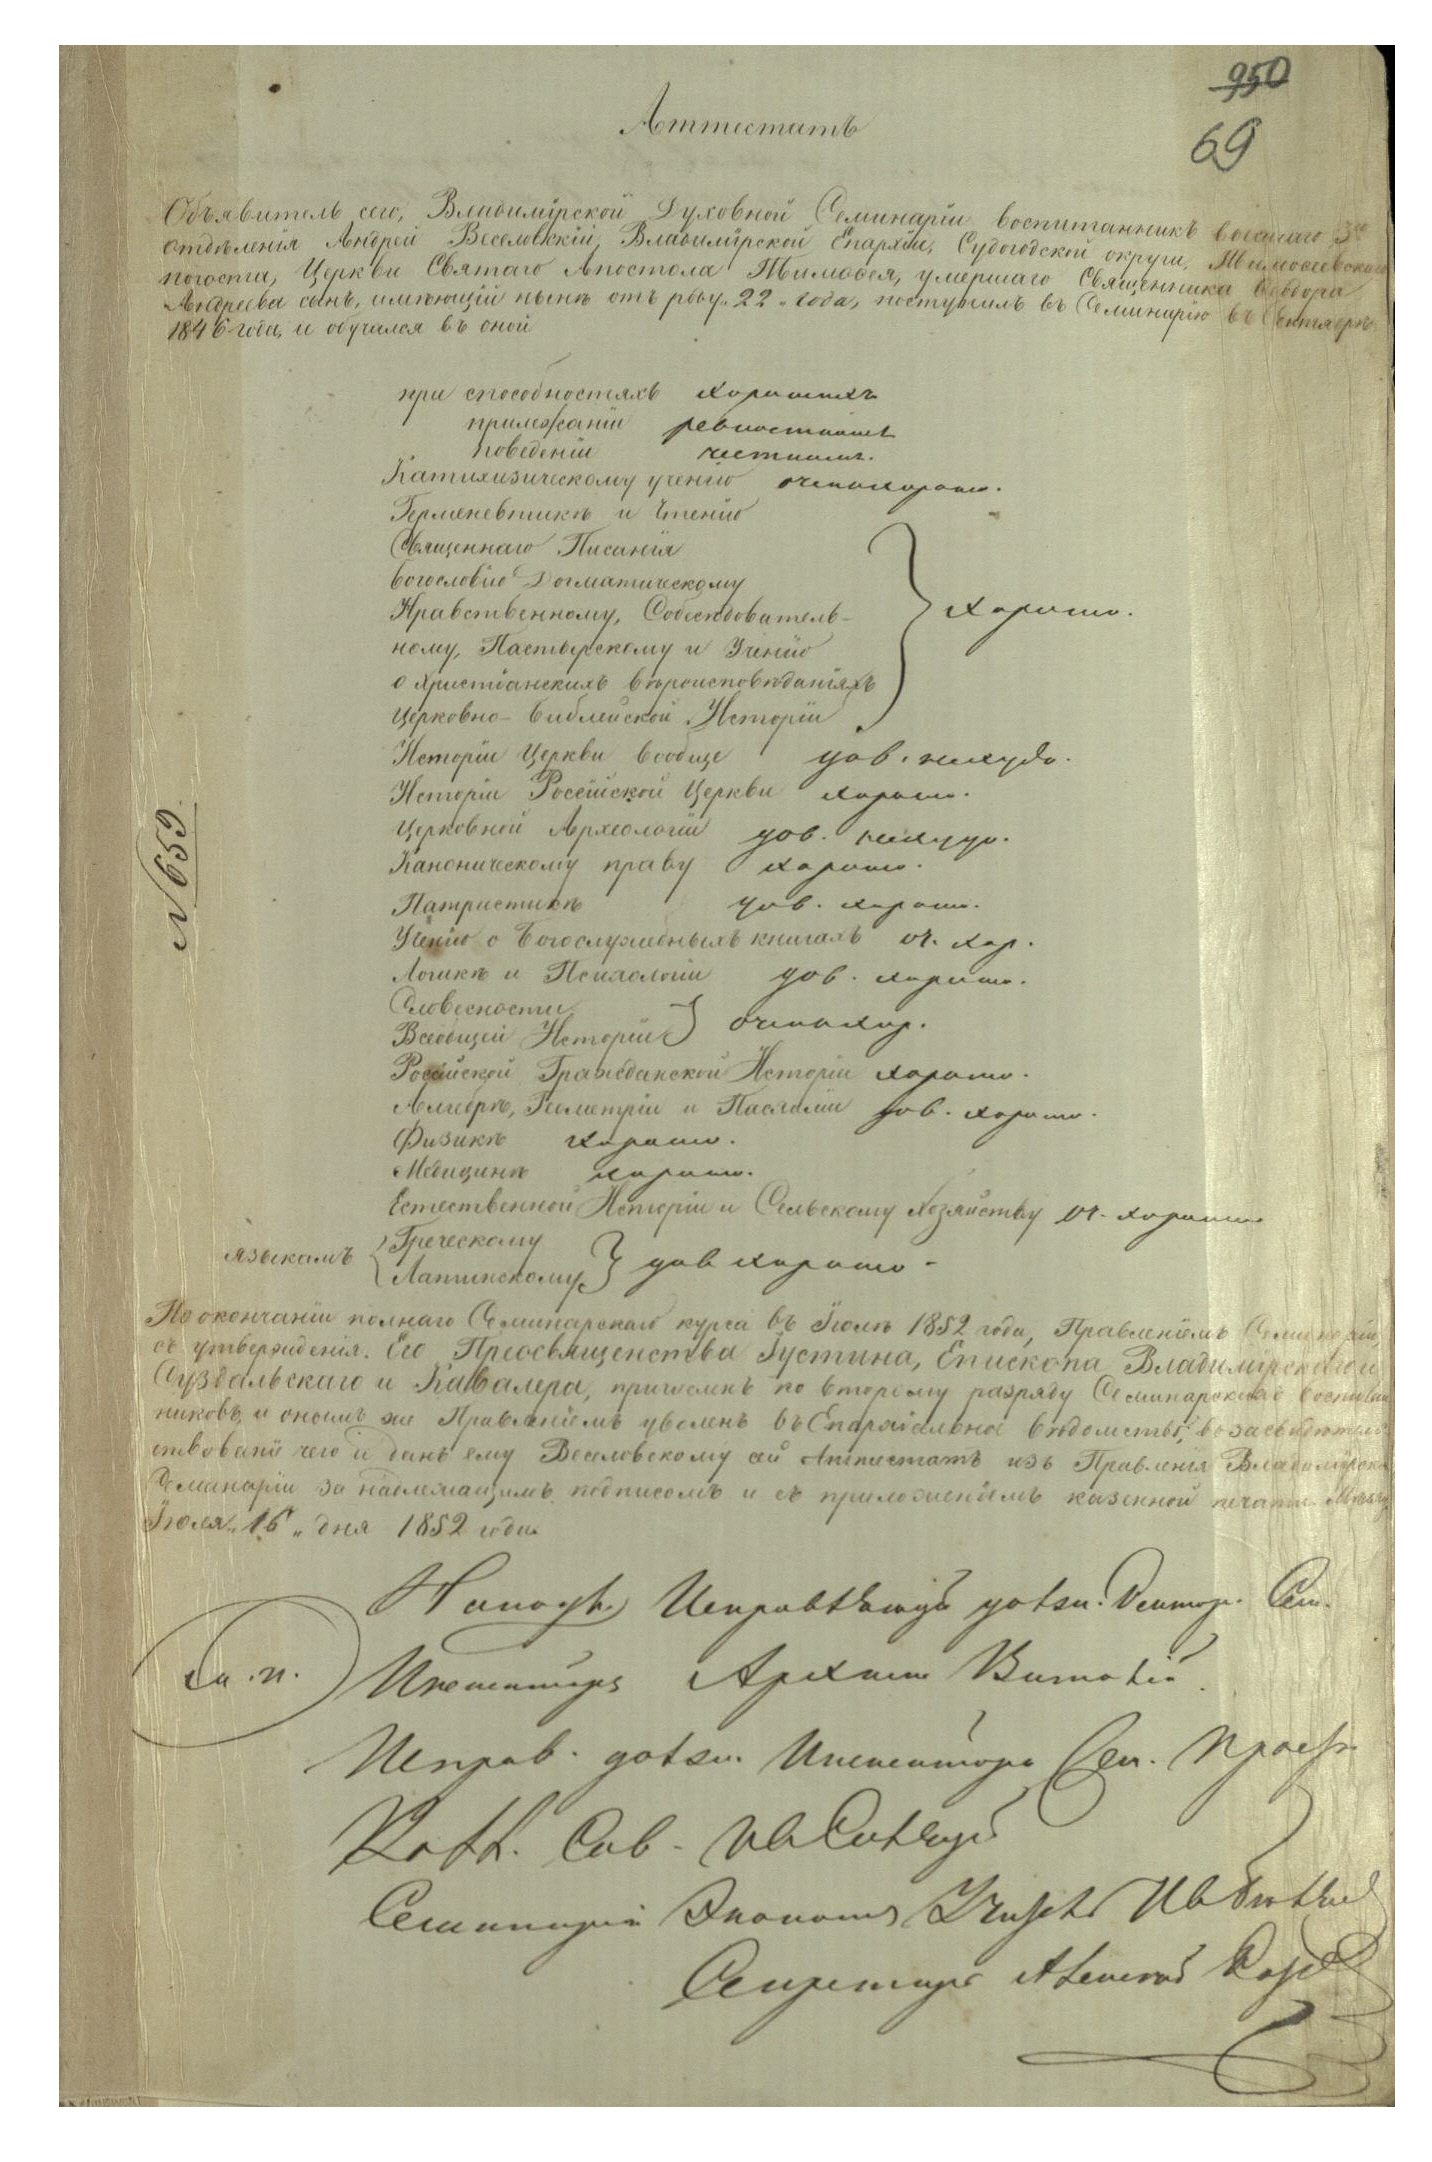 950
69
Аттестатъ
Объявитель сего, Владимірской Духовной Семинаріи воспитанникъ высшаго 3го
отдѣленія Андрей Веселовскій, Владимірской Епархіи, Судогодской округи, Тимоѳеевскаго
погоста, Церкви Святаго Апостола Тимоѳея, умершаго Священника Ѳеодора
Андреева сынъ, имѣющій нынѣ отъ роду 22 года, поступилъ въ Семинарію въ Сентябрѣ
1846 года, и обучался въ оной
при способностяхъ хорошихъ
прилежаніи ревностномъ
поведеніи честномъ.
Катихизическому ученію очень хорошо.
Герменевтикѣ и Чтенію
Священнаго Писанія
Богословію Догматическому
Нравственному, Собесѣдователь-
ному, Пастырскому и Ученію
о Христіанскихъ вѣроисповѣданіяхъ
Церковно-Библейской Исторіи
} хорошо.
Исторіи Церкви вообще удов. нехудо.
Исторіи Россійской Церкви хорошо.
Церковной Археологіи удов. нехудо.
Каноническому праву хорошо.
Патристикѣ удов. хорошо.
Ученію о Богослужебныхъ книгахъ оч. хор.
Логикѣ и Психологіи удов. хорошо.
Словесности,
Всеобщей Исторіи } очень хор.
Россійской Гражданской Исторіи хорошо.
Алгебрѣ, Геометріи и Пасхаліи удов. хорошо.
Физикѣ хорошо.
Медицинѣ хорошо.
Естественной Исторіи и Сельскому хозяйству оч. хорошо
языкамъ { Греческому
Латинскому } удов хорошо.
№ 659.
По окончаніи полнаго Семинарскаго курса въ Іюлѣ 1852 года, Правленіемъ Семинаріи,
съ утвержденія Его Преосвященства Іустина, Епископа Владимірскаго и
Суздальскаго и Кавалера, причисленъ ко второму разряду Семинарскихъ воспитан
никовъ, и онымъ же Правленіемъ уволенъ въ Епархіальное вѣдомство, въ засвидѣтель
ствованіе чего и данъ ему Веселовскому сей Аттестатъ изъ Правленія Владимірской
Семинаріи за надлежащимъ подписомъ и съ приложеніемъ казенной печати.
Іюля „16„ дня 1852 года
Исправляющій должн. Ректор. Сем.
м. п.
Инспекторъ
Исправ. должн. Инспектора Сем. Проф.
Колл. Сов.
Семинаріи Экономъ
Секретарь Алексей